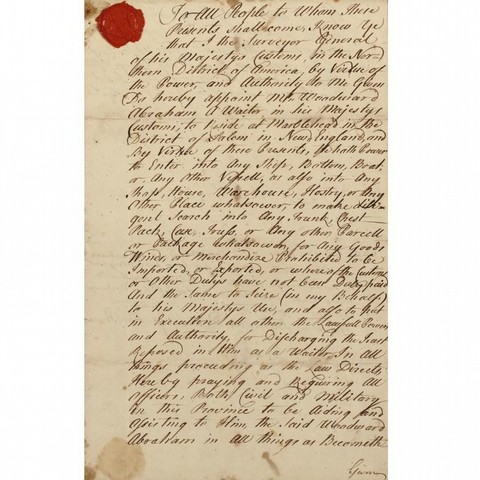 To All People to Whom These
Presents Shall come, Know Ye
that I the Surveyor General
of his Majestys Customs, in the Nor-
thern District of America, by Virtue of
the Power, and Authority to Me Given
Do hereby appoint Mr. Woodward
Abraham A Waiter in his Majestys
Customs, to Reside at Marblehead in the
District of Salem in New England, and
By Virtue of these Presents, he hath Power
to Enter into Any Ship, Bottom, Boat
or, Any Other Vessell, as also into Any
Shop, House, Warehouse, Hostry, or Any
Other Place whatsoever, to make dili-
gent Search into Any Trunk, Chest
Pack, Case, Truss, or Any other Parcell
or Package whatsoever, for Any Goods,
Wines, or Merchandize Prohibited to be
Imported, or Exported, or whereof the Customs
or Other Dutys have not been Duly paid
And the Same to Seize (in my Behalf)
to his Majestys Use, and also to put
in Execution all other the Lawfull Powers
and Authority, for Discharging the Trust
Reposed in Him as a Waiter, In All
things proceeding as the Law Directs
Hereby praying and Requiring All
Officers, Both Civil and Military
in this Province to be Aiding and
Assisting to Him, the Said Woodward
Abraham in All things as Becometh
Given